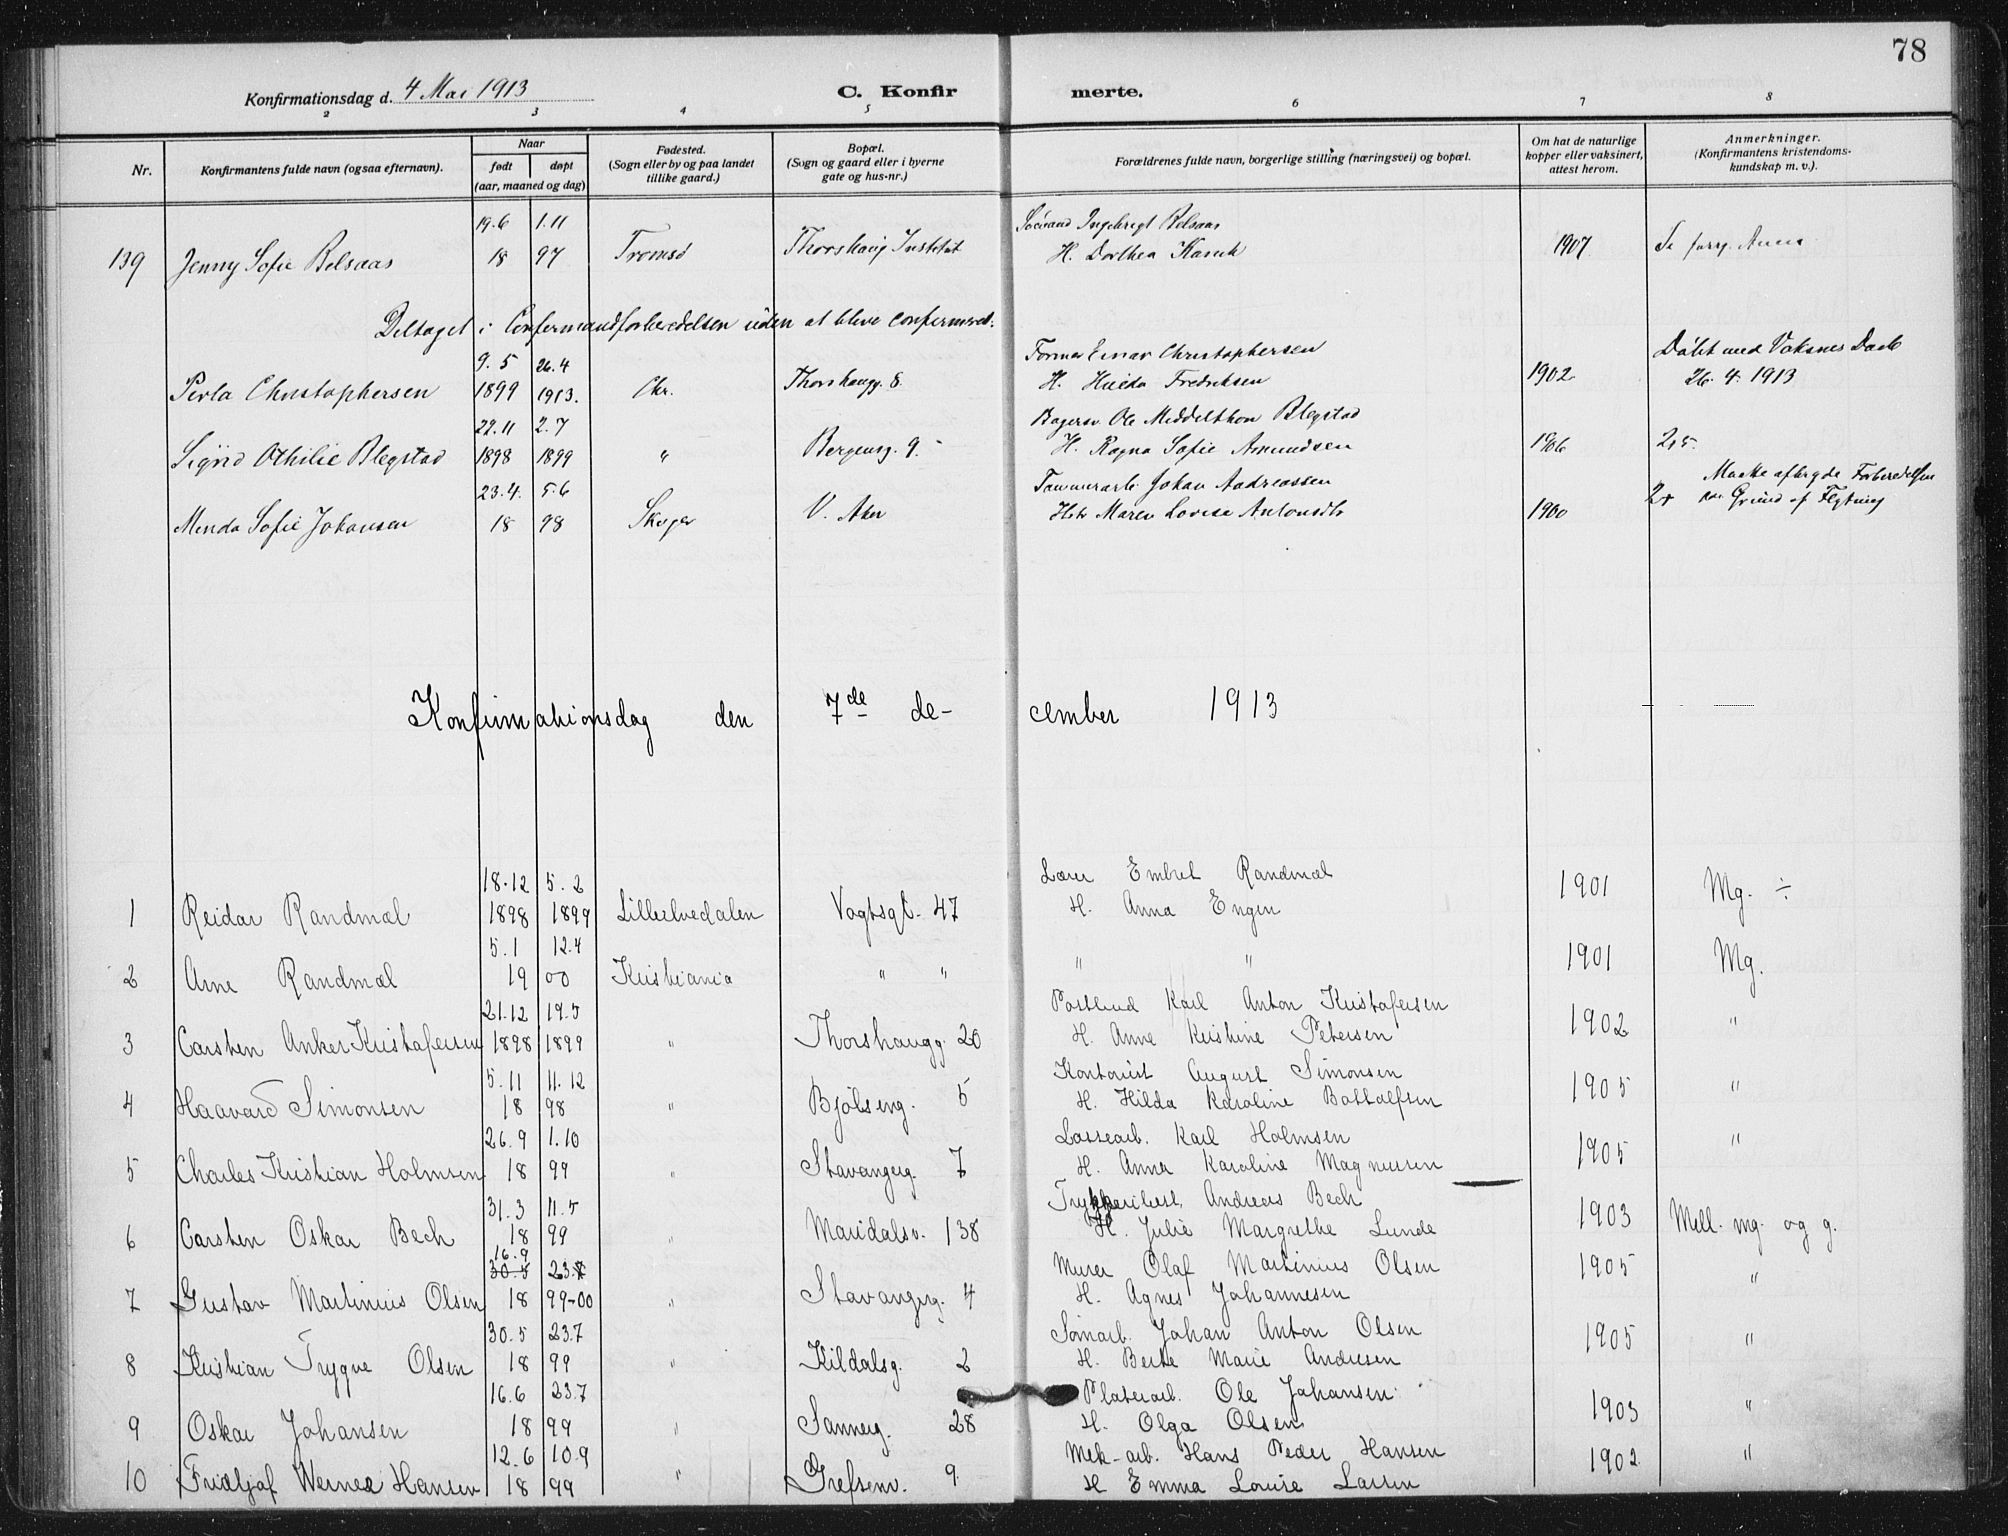 78
Konfirmationsdag d. 4 Mai 1913 C. Konfir merte.
2 3 4 5 6 7 8
Nr.
Konfirmantens fulde navn (ogsaa efternavn).
Naar
født døpt
(aar, maaned og dag)
Fødested.
(Sogn eller by og paa landet
tillike gaard.)
Bopæl.
(Sogn og gaard eller i byerne
gate og hus-nr.)
Forældrenes fulde navn, borgerlige stilling (næringsvei) og bopæl.
Om hat de naturlige
kopper eller vaksinert,
attest herom.
Anmerkninger.
(Konfirmantens kristendoms-
kundskap m. v.).
19.6 1.11 Ingebrigt Belsaas
139 Jenny Sofie Belsaas 18 97 Tromsø Thorshaug Institut H. Dorthea 1907
Deltaget i Confirmandforberedelsen uden at blive confirmeret.
9.5 26.4 Former Einar Christophersen Døbt med Voksnes Daab
Perla Christophersen 1899 1913. Chr. Thorshaugg. 8 H. Hulda Fredriksen 1902 26.4.1913
22.11 2.7 Bagersv. Ole Middelthon Blegstad
Sigrid Othilie Blegstad 1898 1899 " Bergensg. 9. H. Ragna Sofie Amundsen 1906
23.4. 5.6 Tømmerarb. Johan Andreassen Maatte afbryde Forberedelsen
Minda Sofie Johansen 18 98 Skoger V. Aker Hst. Maren Lovise Antonsdtr 1900 paa Grund af Flytning
Konfirmationsdag den 7de de- cember 1913
18.12 5.2 Lærer Embret Randmæl
1 Reidar Randmæl 1898 1899 Lilleelvedalen Vogtsgt. 47 H. Anna Engen 1901 Mg. ÷
5.1 12.4
2 Arne Randmæl 19 00 Kristiania " " " " 1901 Mg.
21.12 19.5 Postbud Karl Anton Kristofersen
3 Carsten Anker Kristofersen 1898 1899 " Thorshaugg. 20 H. Anne Kristine Petersen 1902 "
5.11 11.12 Kontorist August Simonsen
4 Haavard Simonsen 18 98 " Bjølseng. 5 H. Hilda Karoline Bottolfsen 1905 "
26.9 1.10 Lossearb. Karl Holmsen
5 Charles Kristian Holmsen 18 99 " Stavangerg. 7 H. Anna Karoline Magnussen 1905 "
31.3 11.5 Andreas Bech
6 Carsten Oskar Bech 18 99 " Maridalsv. 138 H. Julie Margrethe Lunde 1903 Mell. mg. og g.
16.9
30.5 23.7 Murer Olaf Martinius Olsen
7 Gustav Martinius Olsen 18 99-00 " Stavangerg. 4 H. Agnes Johannesen 1905 "
30.5 23.7 Johan Anton Olsen
8 Kristian Trygve Olsen 18 99 " Kildalsg. 2 H. Berte Marie Andresen 1905 "
16.6 23.7 Platearb. Ole Johansen
9 Oskar Johansen 18 99 " Sannerg. 28 H. Olga Olsen 1903 "
12.6 10.9 Mek-arb. Hans Peder Hansen
10 Fridtjof Werner Hansen 18 99 " Grefsenv. 9 H Emma Louise Larsen 1902 "